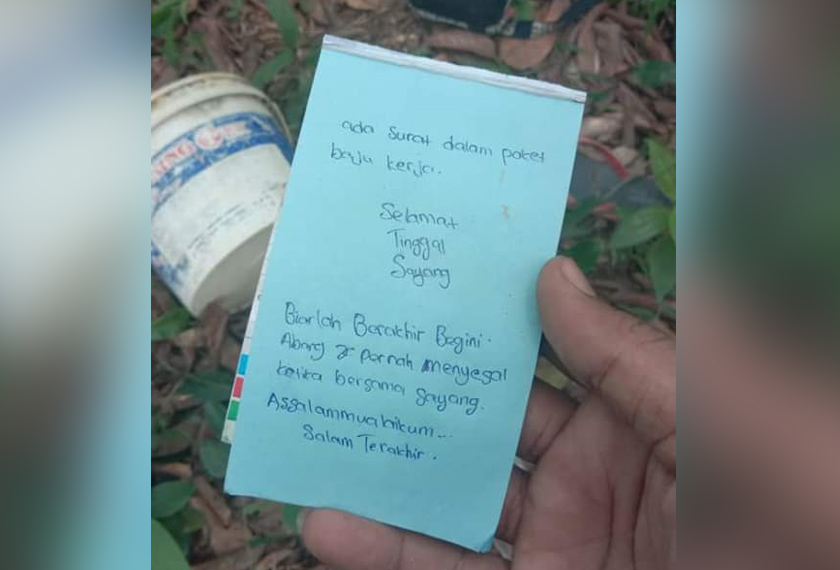 ada surat dalam poket
baju kerja.
Selamat
Tinggal
Sayang
Biarlah Berakhir Begini.
Abang x pernah menyesal
ketika bersama sayang.
Assalammualaikum...
Salam Terakhir.